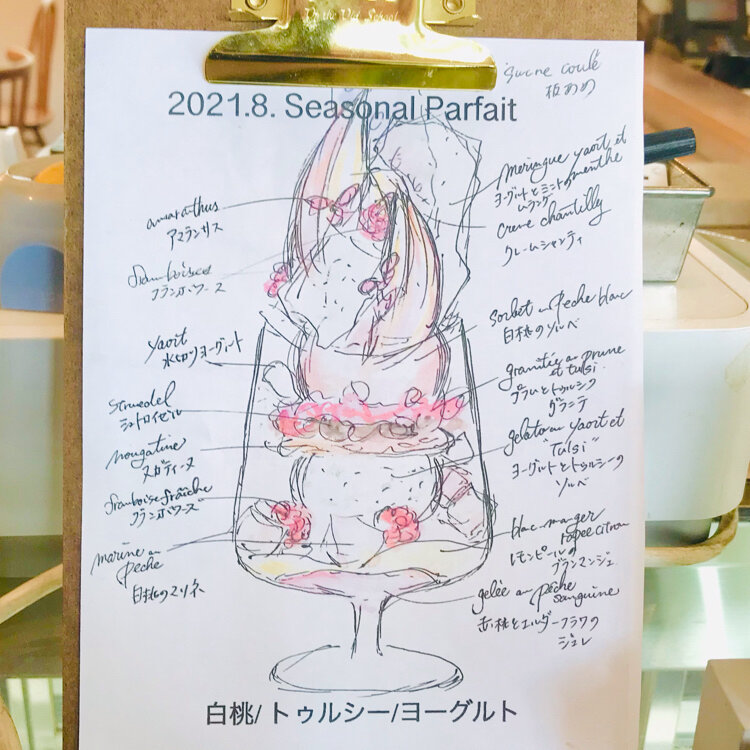 2021.8. Seasonal Parfait
sucre coulé
板あめ
amaranthus
アマランサス
framboises
フランボワーズ
yaort
水切りヨーグルト
streusdel
シュトロイゼル
nougatine
ヌガティーヌ
framboise fraîche
フランボワーズ
marine au
pêche
白桃のマリネ
meringue yaort et
menthe
ヨーグルトとミントの
ムラング
creme chantilly
クレームシャンティ
sorbet au Pêche blanc
白桃のソルベ
granitée au prune
et tulsi
プラムとトゥルシーの
グラニテ
gelato au yaort et
"Tulsi"
ヨーグルトとトゥルシーの
ソルベ
blanc-manger
citron
レモンピールの
ブランマンジェ
gelée au pêche
sanguine
赤桃とエルダーフラワーの
ジュレ
白桃/トゥルシー/ヨーグルト